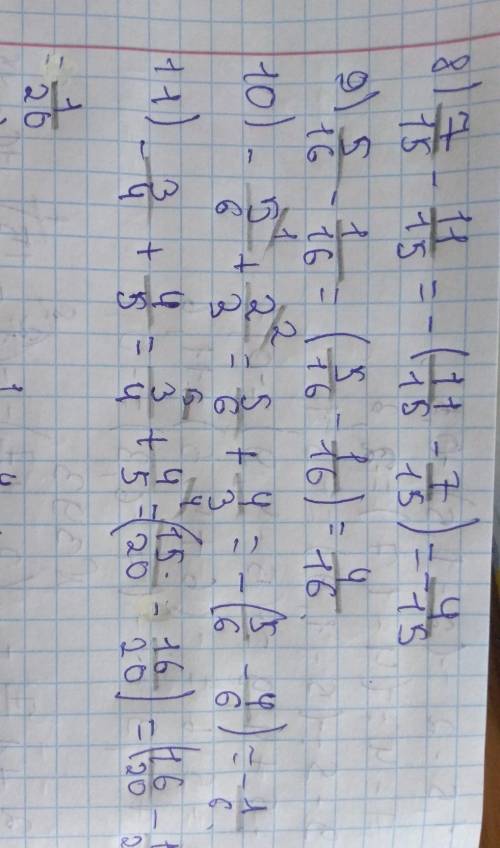 8) 7/15 - 11/15 = - (11/15 - 7/15) = - 4/15
9) 5/16 - 1/16 = (5/16 - 1/16) = 4/16
10) - 5/6 + 2/3 = 5/6 + 4/3 = - (5/6 - 4/6) = - 1/6
11) - 3/4 + 4/5 = 3/4 + 4/5 = (15/20 - 16/20) = (16/20 -
= 1/20